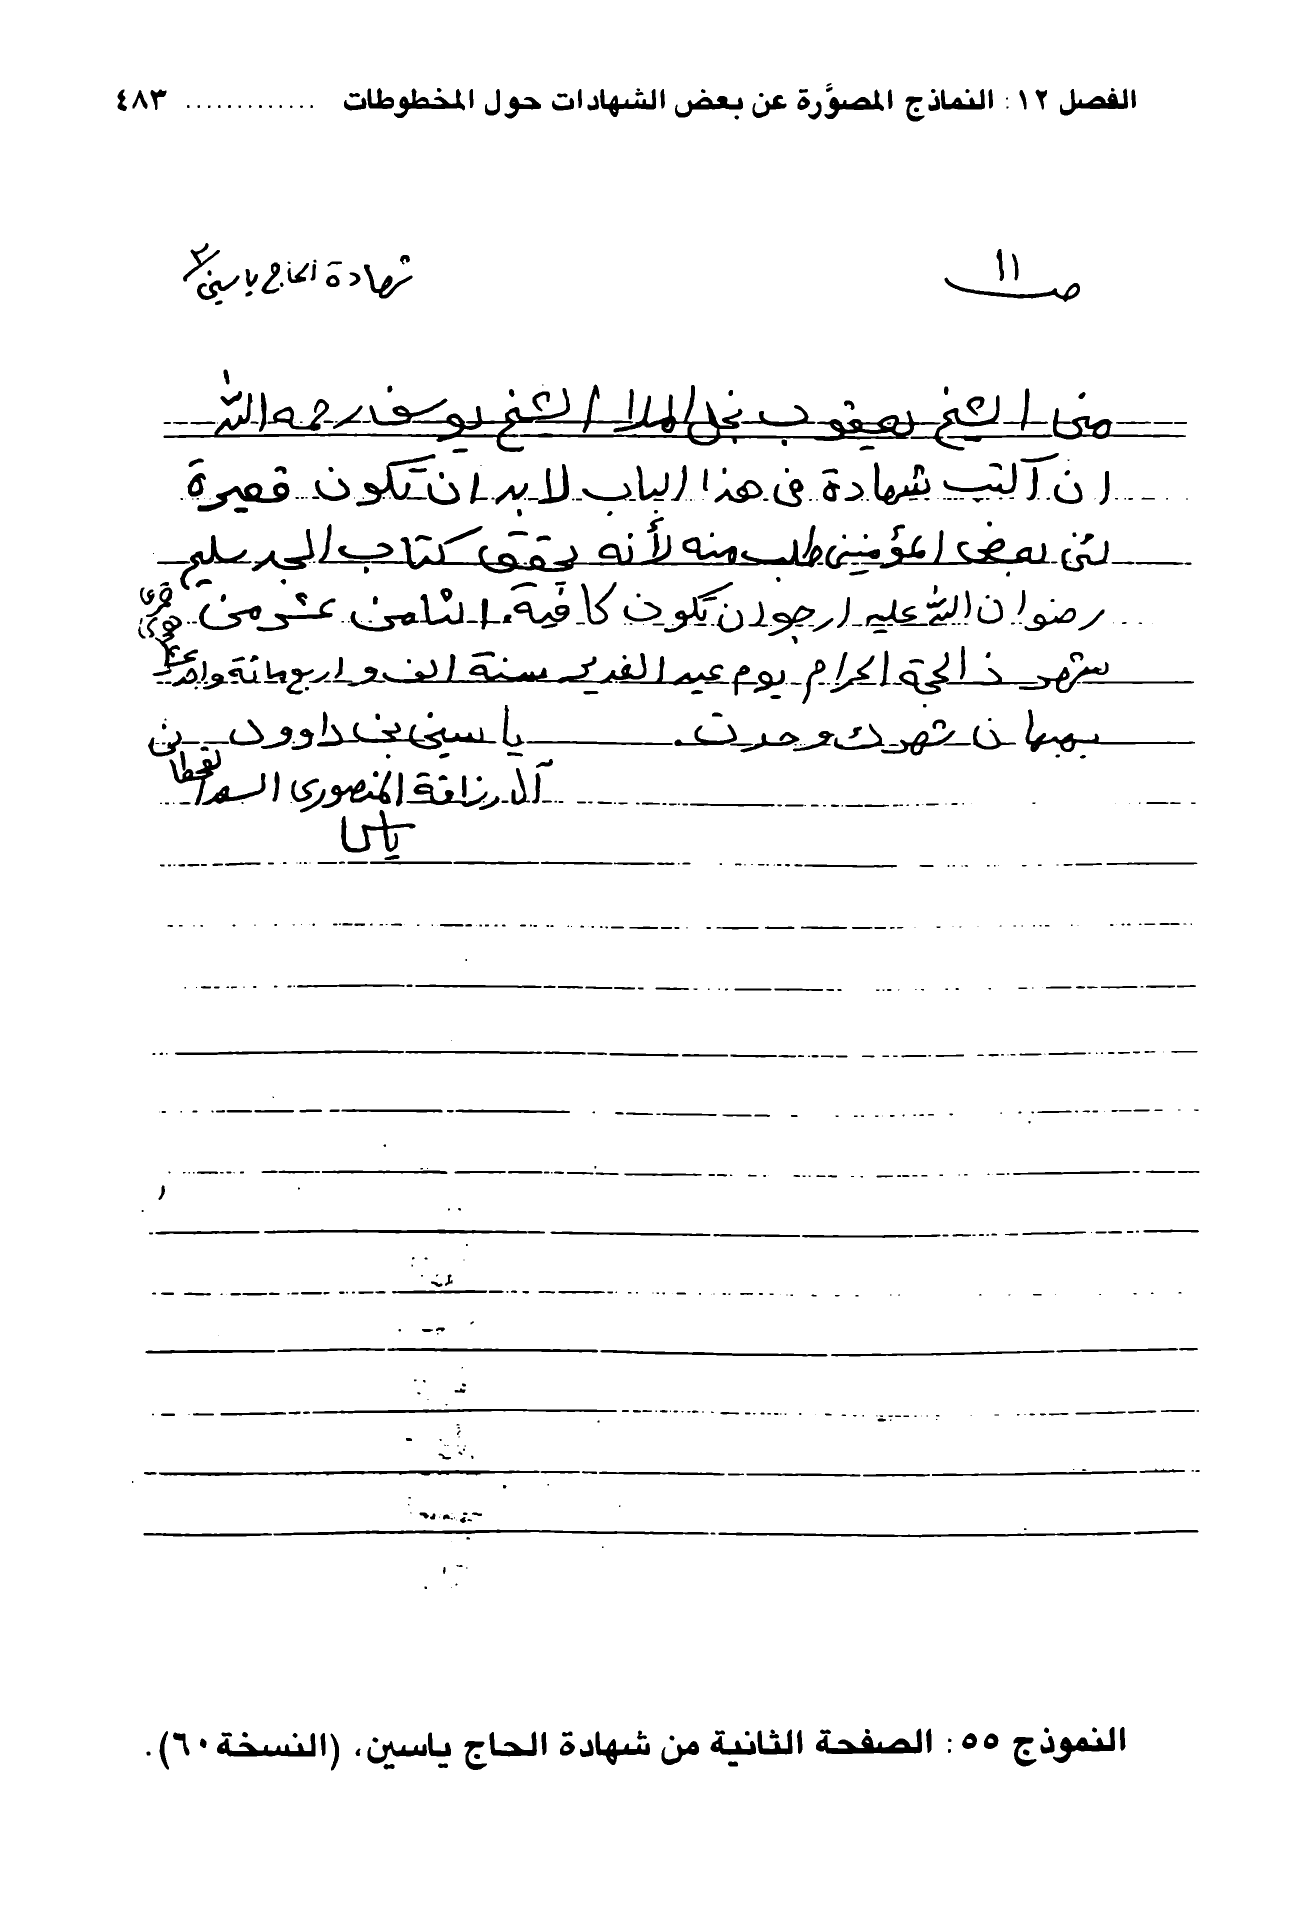 الفصل ١٢: النماذج المصوَّرة عن بعض الشهادات حول المخطوطات ............. ٤٨٣
صـ ١١
شهادة الحاج ياسين/٢
منى الشيخ يعقوب نجل الملا الشيخ يوسف رحمه الله
ان اكتب شهادة في هذا الباب لابد ان تكون قصيرة
لئن بعض المؤمنين طلب منه لأنه يحقق كتاب الجد سليم
رضوان الله عليه ارجو ان تكون كافية. الثامن عشر من
شهر ذالحجة الحرام يوم عيد الغدير سنة الف و اربع مائة
بهبهان شهدت وحدت. ياسين بن داوود بن
آل رزاقة المنصوري
النموذج ٥٥: الصفحة الثانية من شهادة الحاج ياسين، (النسخة ٦٠).